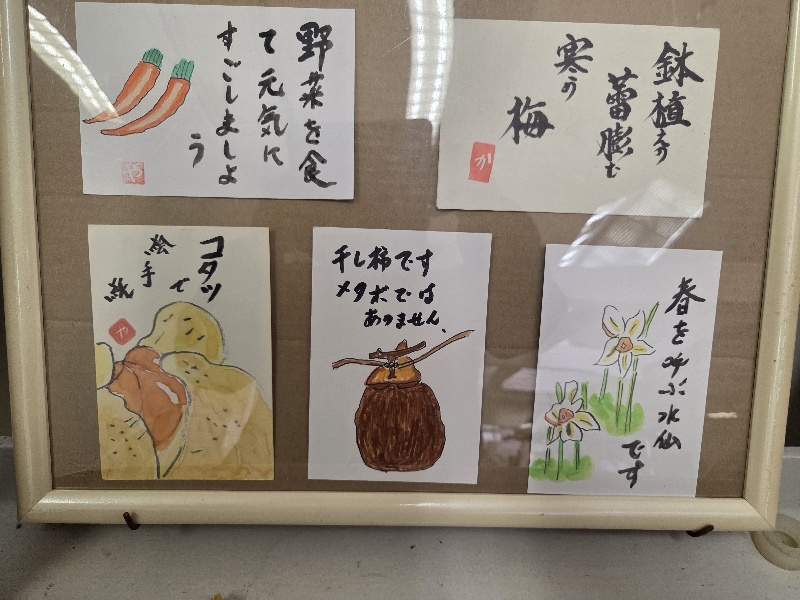 野菜を食
て元気に
すごしましょ
う
や
鉢植えの
蕾膨む
寒の
梅
か
コタツ
で
絵手
紙
や
干し柿です
メタボでは
ありません、
春を呼ぶ水仙
です